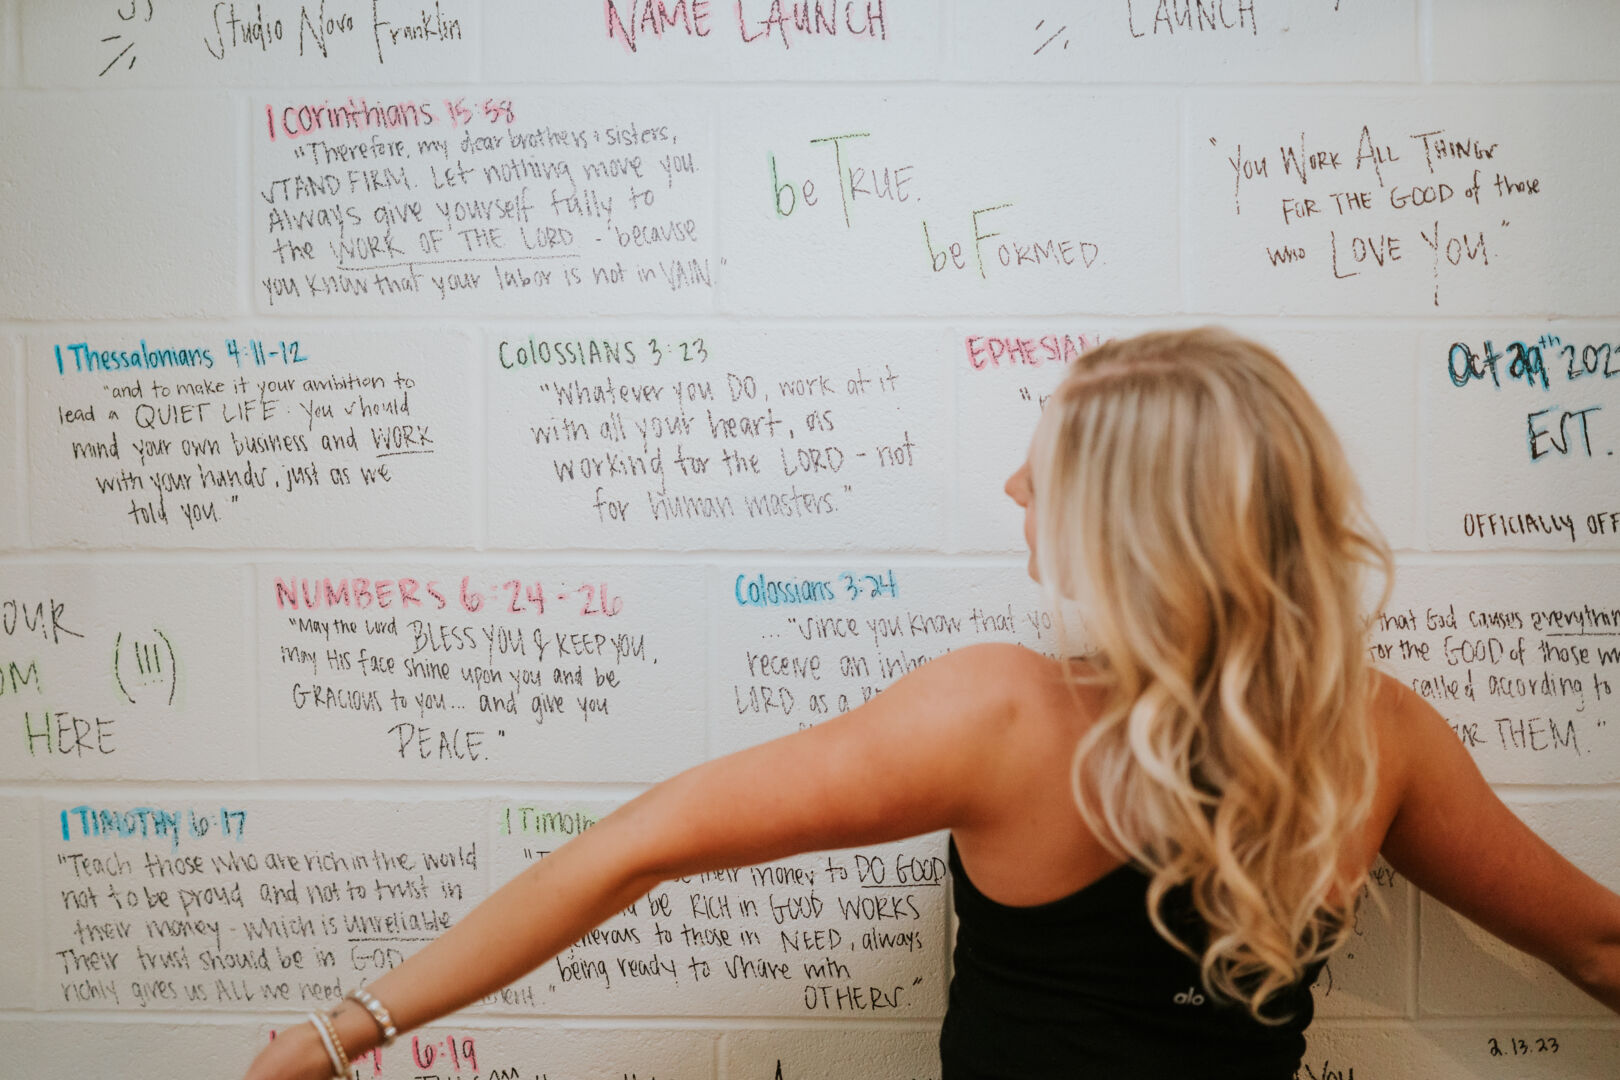 Studio Novo Franklin
NAME LAUNCH
LAUNCH
1 Corinthians 15:58
"Therefore, my dear brothers & sisters,
STAND FIRM. LET nothing move you.
Always give yourself fully to
the WORK OF THE LORD - because
you know that your labor is not in VAIN."
be TRUE.
be FORMED.
"YOU WORK ALL THINGS
FOR THE GOOD of those
who LOVE YOU."
1 Thessalonians 4:11-12
"and to make it your ambition to
lead a QUIET LIFE: You should
mind your own business and WORK
with your hands, just as we
told you."
COLOSSIANS 3:23
"Whatever you DO, work at it
with all your heart, as
working for the LORD - not
for human masters."
EPHESIAN
Oct 29th 202
EST.
OFFICIALLY OFF
OUR
(III)
OM
HERE
NUMBERS 6:24-26
"May the Lord BLESS YOU & KEEP YOU,
may His face shine upon you and be
GRACIOUS to you... and give you
PEACE."
Colossians 3:24
... "since you know that yo
receive an inh
LORD as a RE
that God causes everythin
for the GOOD of those w
called according to
FOR THEM."
1 TIMOTHY 6:17
"Teach those who are rich in the world
not to be proud and not to trust in
their money - which is unreliable
Their trust should be in GOD
richly gives us ALL we need
ment."
1 Timoth
their money to DO GOOD
be RICH in GOOD WORKS
generous to those in NEED, always
being ready to share with
OTHERS."
6:19
2.13.23
You
alo